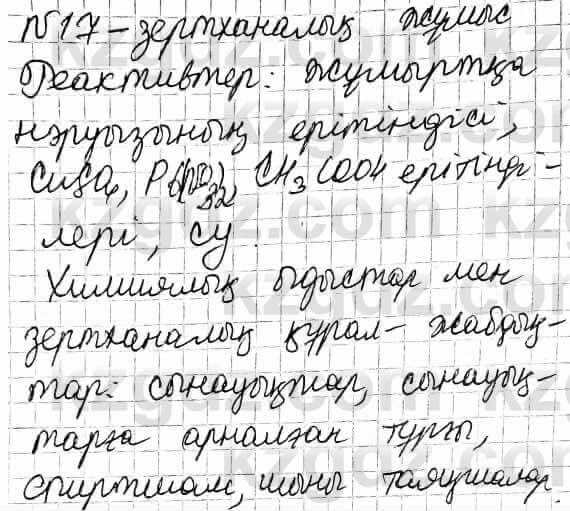 №17-зертханалық жұмыс
Реактивтер: жұмыртқа
нәруызының ерітіндісі,
CuSO₄, Pb(NO₃)₂, CH₃COOH ерітінді-
лері, су.
Химиялық ыдыстар мен
зертханалық құрал-жабдық-
тар: сынауықтар, сынауық-
тарға арналған тұрғы,
спиртшам, шыны таяқшалар.